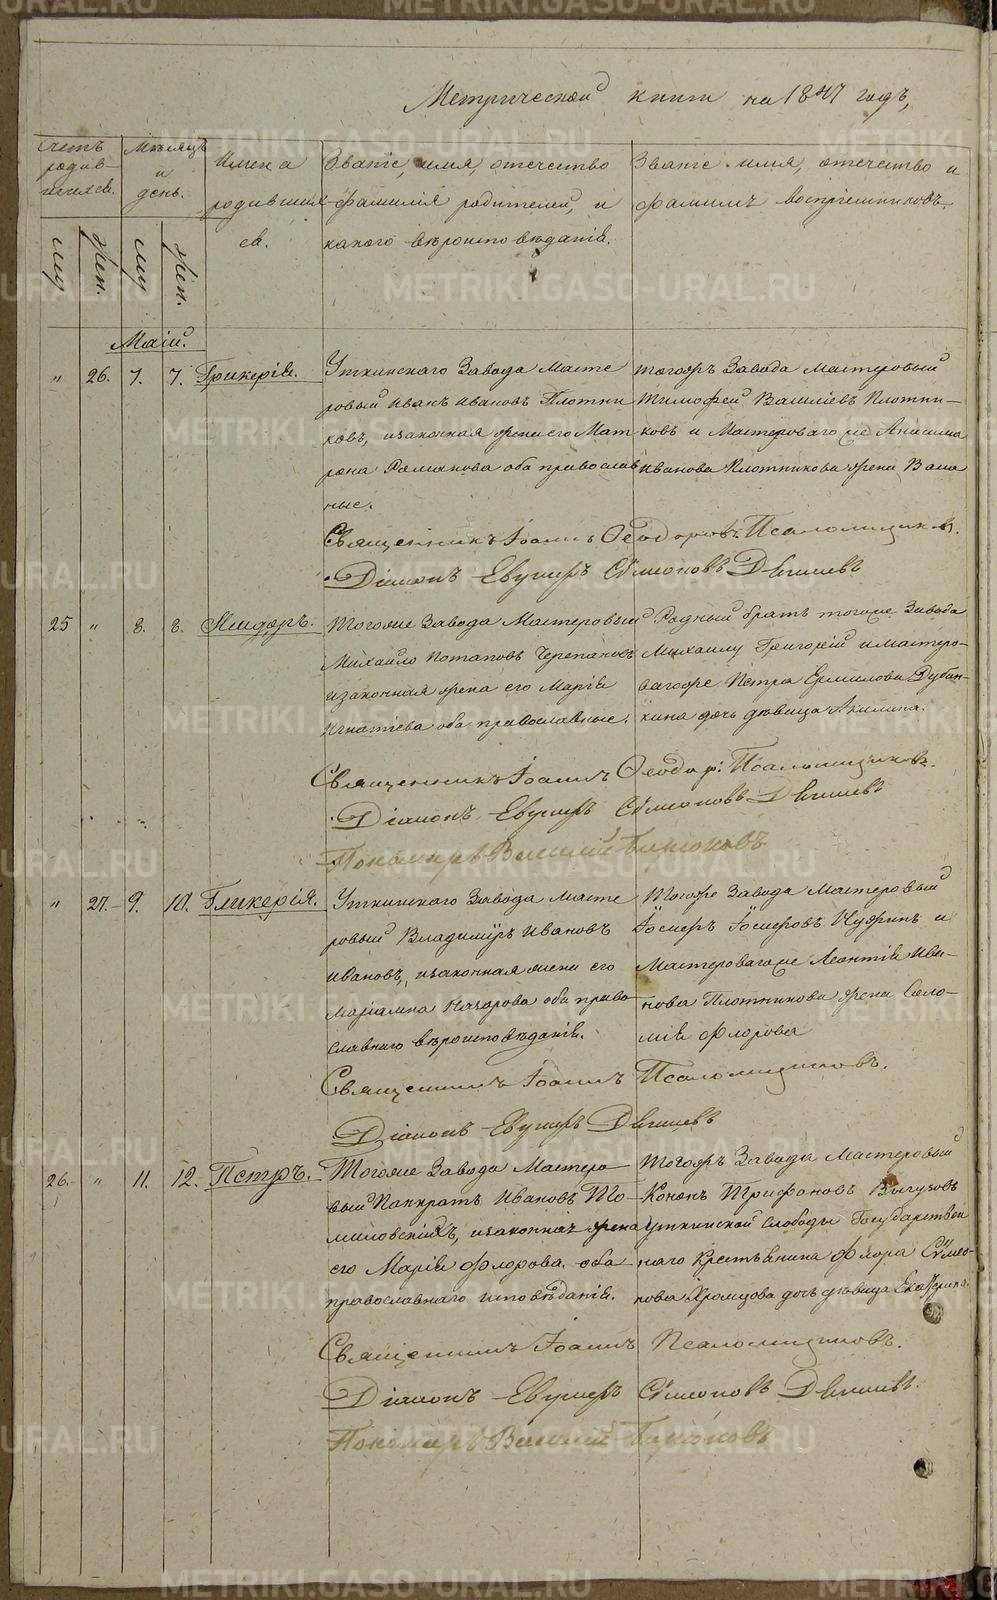 Метрической книги на 1847 годъ,
Счетъ родив-шихся.
Мѣсяцъ и день.
Имена родившихся.
Званіе, имя, отечество фамилія родителей, и какого вѣроисповѣданія.
Званіе имя, отечество и фамилія воспріемниковъ.
муж. жен. муж. жен.
Маій.
" 26. 7. 7. Гликерія.
Уткинскаго Завода Масте
ровый Иванъ Ивановъ Плотни
ковъ, изаконная жена его Мат
рона Романова оба православ
ные.
тогожъ Завода мастеровый
Тимофей Васильевъ Плотни-
ковъ и Мастероваго же Анисима
Иванова Плотникова жена Васса
Священникъ Іоаннъ Ѳеодоровъ Псаломщиковъ.
Діаконъ Евгиеръ Сѵмеоновъ
25 " 8. 8. Исидоръ.
Тогоже Завода Мастеровый
Михайло Потаповъ Черепановъ
изаконная жена его Марія
Игнатіева оба православные.
Родный братъ тогоже Завода
Михаилу Григорій и мастеро-
вагоже Петра Ермилова Дубин-
кина дочь дѣвица Акилина.
Священникъ Іоаннъ Ѳеодор: Псаломщиковъ.
Діаконъ Сѵмеоновъ
Пономарь Василій Бирюковъ
" 27. 9. 10. Гликерія.
Уткинскаго Завода масте
ровый Владиміръ Ивановъ
Ивановъ, изаконная жена его
Маріамна Назарова оба право
славнаго вѣроисповѣданія.
Тогоже Завода Мастеровый
Іосифъ Іосифовъ и
Мастероваго же Леонтія Ива-
нова Плотникова жена Соло-
мія Флорова
Священникъ Іоаннъ Псаломщиковъ.
Діаконъ
26. " 11. 12. Петръ.
Тогоже Завода Мастеро
вый Панкратъ Ивановъ То
миловскихъ, изаконная жена
его Марія Флорова. оба
православнаго исповѣданія.
Тогожъ Завода Мастеровый
Кононъ Трифоновъ
Уткинской Слободы Государствен
наго Крестьянина Флора Сѵмео-
нова Хромцова дочь дѣвица Екатерина.
Священникъ Іоаннъ Псаломщиковъ.
Діаконъ Сѵмеоновъ
Пономарь Василій Бирюковъ
METRIKI.GASO-URAL.RU